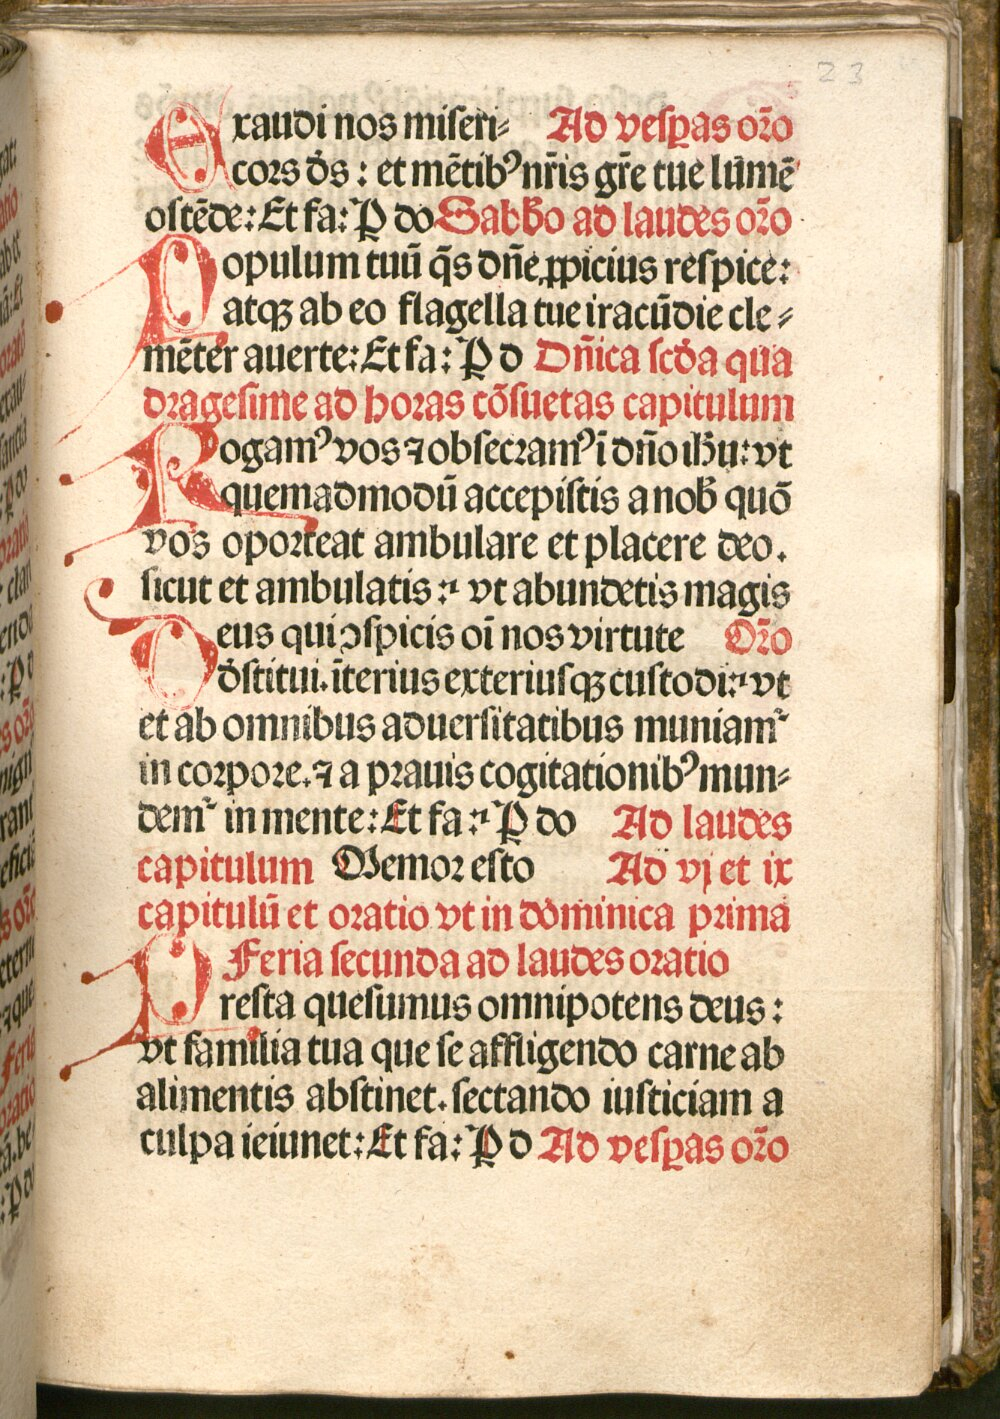 23
Exaudi nos miseri⸗ Ad vesꝑas or̄o
cors d̄s : et mētibꝰ nr̄is gr̄e tue lumē
ostēde: Et fa: P do Sabb̄o ad laudes or̄o
Populum tuū q̄s dn̄e ꝓpicius respice:
atqꝫ ab eo flagella tue iracūdie cle⸗
mēter auerte: Et fa: P d Dn̄ica scd̄a qua
dragesime ad horas cōsuetas capitulum
Rogamꝰ vos ⁊ obsecramꝰ ī dn̄o ih̄u: vt
quemadmodū accepistis a nob̄ quō
vos oporteat ambulare et placere deo.
sicut et ambulatis: vt abundetis magis
Deus qui ↄspicis oī nos virtute Or̄o
d̄stitui. īterius exteriusqꝫ custodi: vt
et ab omnibus aduersitatibus muniam᷑
in corpore. ⁊ a prauis cogitationibꝰ mun⸗
dem᷑ in mente: Et fa: P do Ad laudes
capitulum Memor esto Ad vj et ix
capitulū et oratio vt in dominica prima
Feria secunda ad laudes oratio
Presta quesumus omnipotens deus :
vt familia tua que se affligendo carne ab
alimentis abstinet. sectando iusticiam a
culpa ieiunet: Et fa: P d Ad vesꝑas or̄o